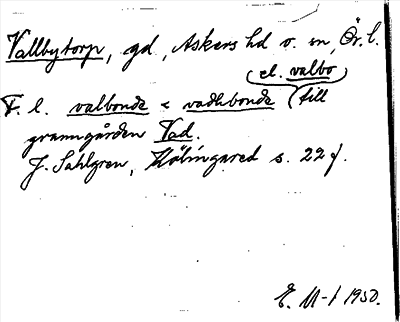 Vallbytorp, gd, Askers hd o. sn, Ör. l.
el. valbo
F. l. valbonde < vadhbonde (till
granngården Vad.
J. Sahlgren, Hälsingared s. 22 f.
E. M-l 1950.